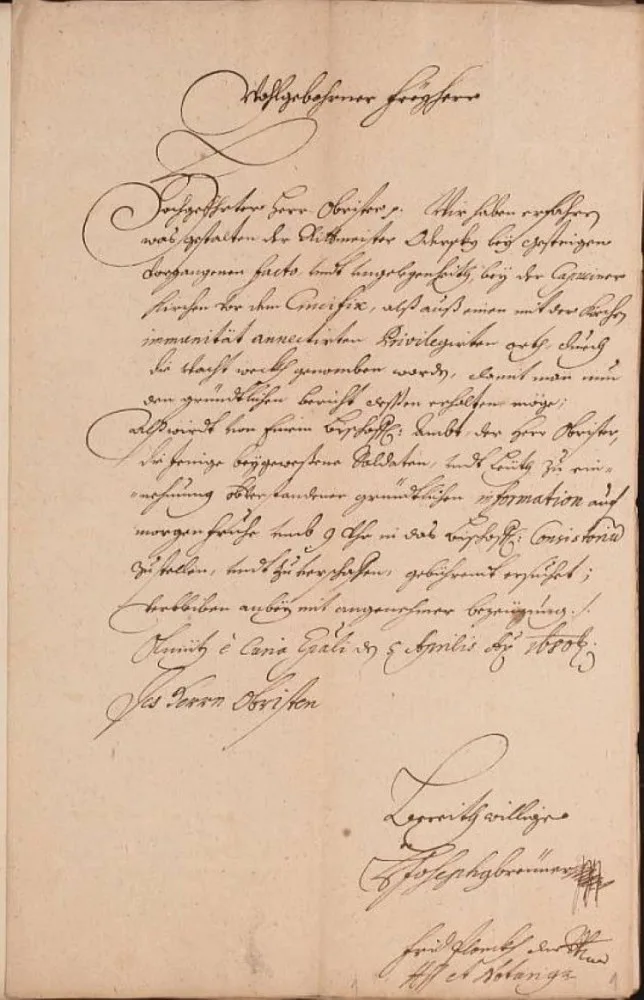 Wohlgebohrner Freyherr
Hochgeehrter Herr Obrister p. Wir haben erfahren
was gestalten der Rittmeister Odersky bey gestrigen
vorgangenen facto undt angelegenheith, bey der Capuciner
Kirchen vor dem Crucifix, alß auß einen mit der Kirchen
immunität annectirten Privilegirten orth, durch
die Wacht weckh genomben worden, damit man nun
den gründtlichen bericht dessen erhalten möge;
Alß wirdt von Einem Bischoffl: Ambt, der Herr Obrister,
die jenige beygeweßene Soldaten, undt Leüth zu ein-
nehmung gründtlichen information auf
morgen fruhe umb 9 Uhr in das Bischoffl: Consistorium
zu stellen, undt zu verschaffen, gebührendt ersuchet;
Verbleiben anbey mit angenehmer bezeügung ./.
Olmütz è Curia Epali den 5 Aprilis
Des Herrn Obristen
Bereithwillige
der
et Notarius